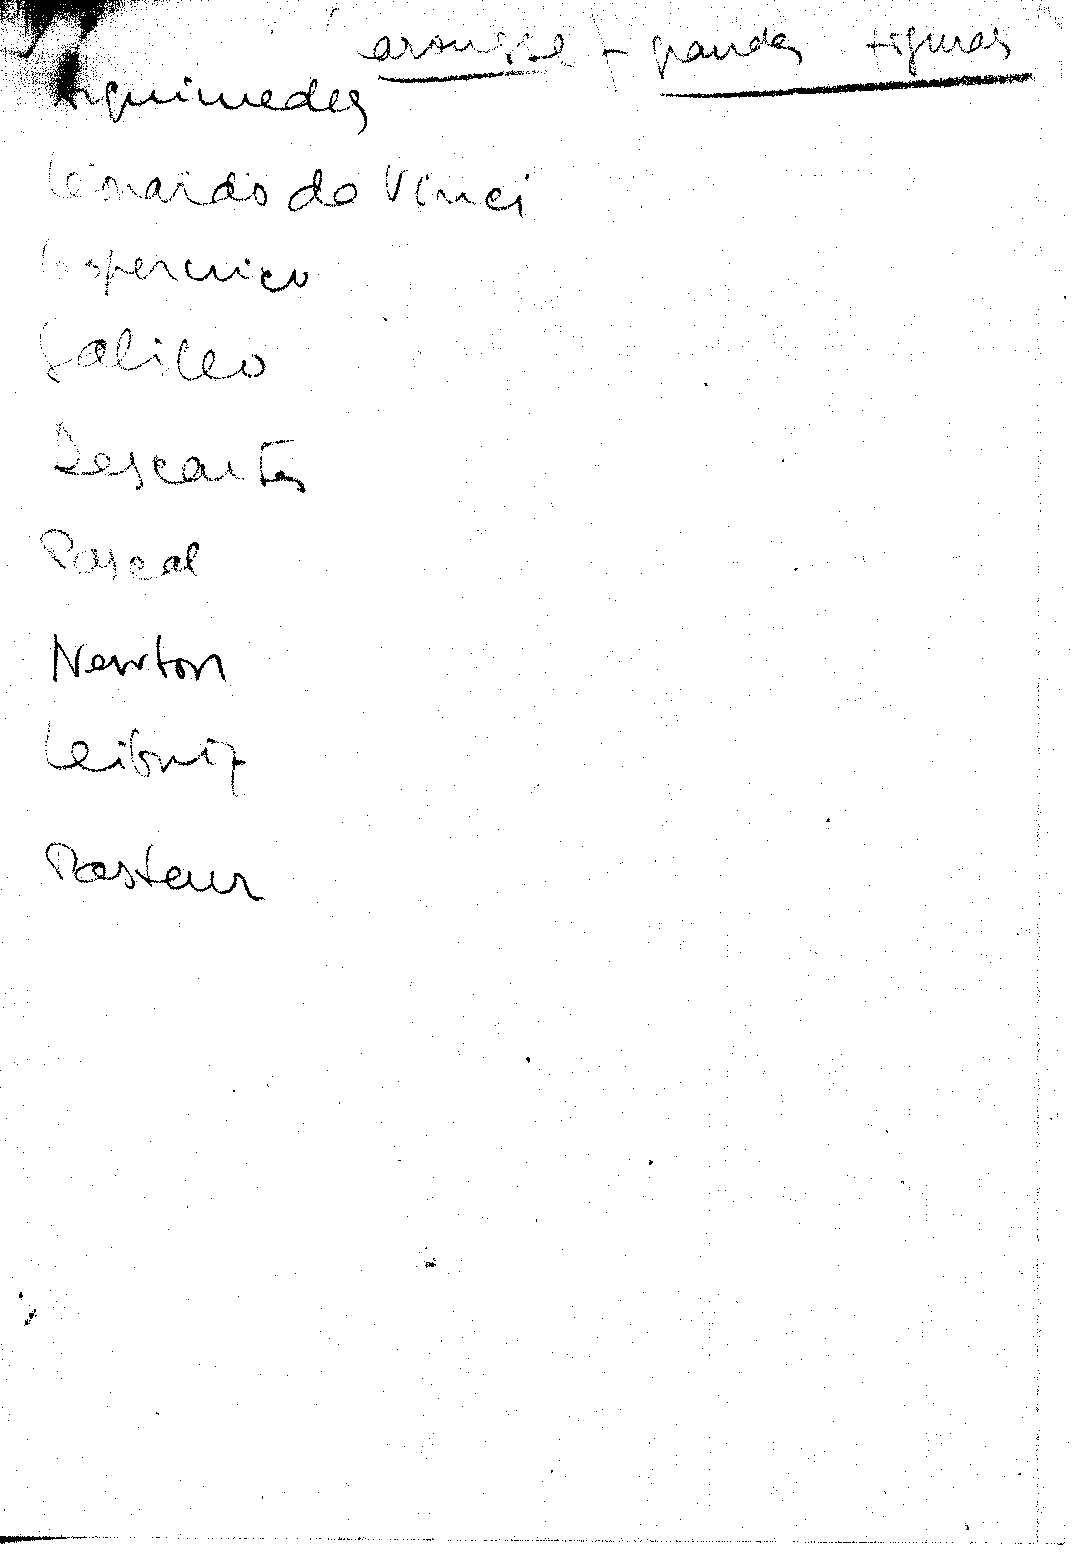 - grandes figuras
Arquimedes
Leonardo da Vinci
Copernico
Galileo
Descartes
Pascal
Newton
Leibniz
Pasteur